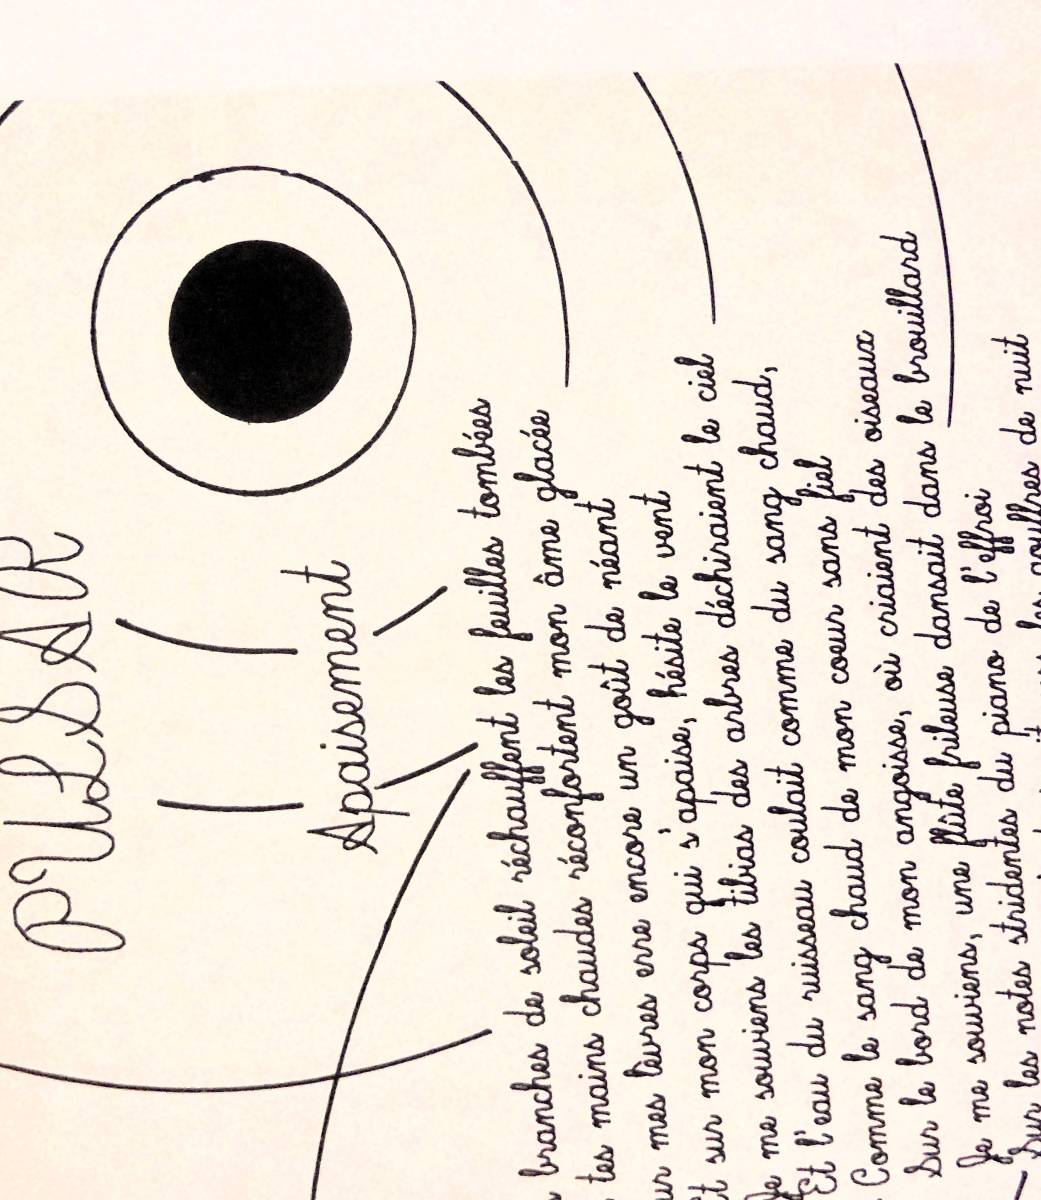 PULSAR
Apaisement
branches de soleil réchauffent les feuilles tombées
tes mains chaudes réconfortent mon âme glacée
ur mes lèvres erre encore un goût de néant
t sur mon corps qui s'apaise, hésite le vent
Je me souviens les tibias des arbres déchiraient le ciel
Et l'eau du ruisseau coulait comme du sang chaud,
Comme le sang chaud de mon coeur sans fiel
Sur le bord de mon angoisse, où criaient des oiseaux
Je me souviens, une flûte frileuse dansait dans le brouillard
Sur les notes stridentes du piano de l'effroi
les gouffres de nuit